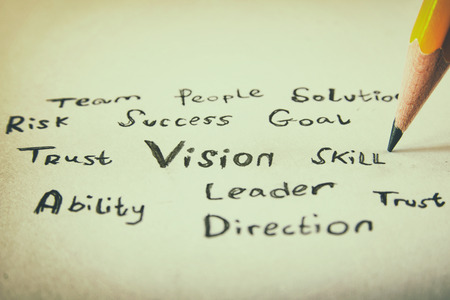 Team People Solution
Risk Success Goal
Trust Vision SKILL
Ability Leader Trust
Direction